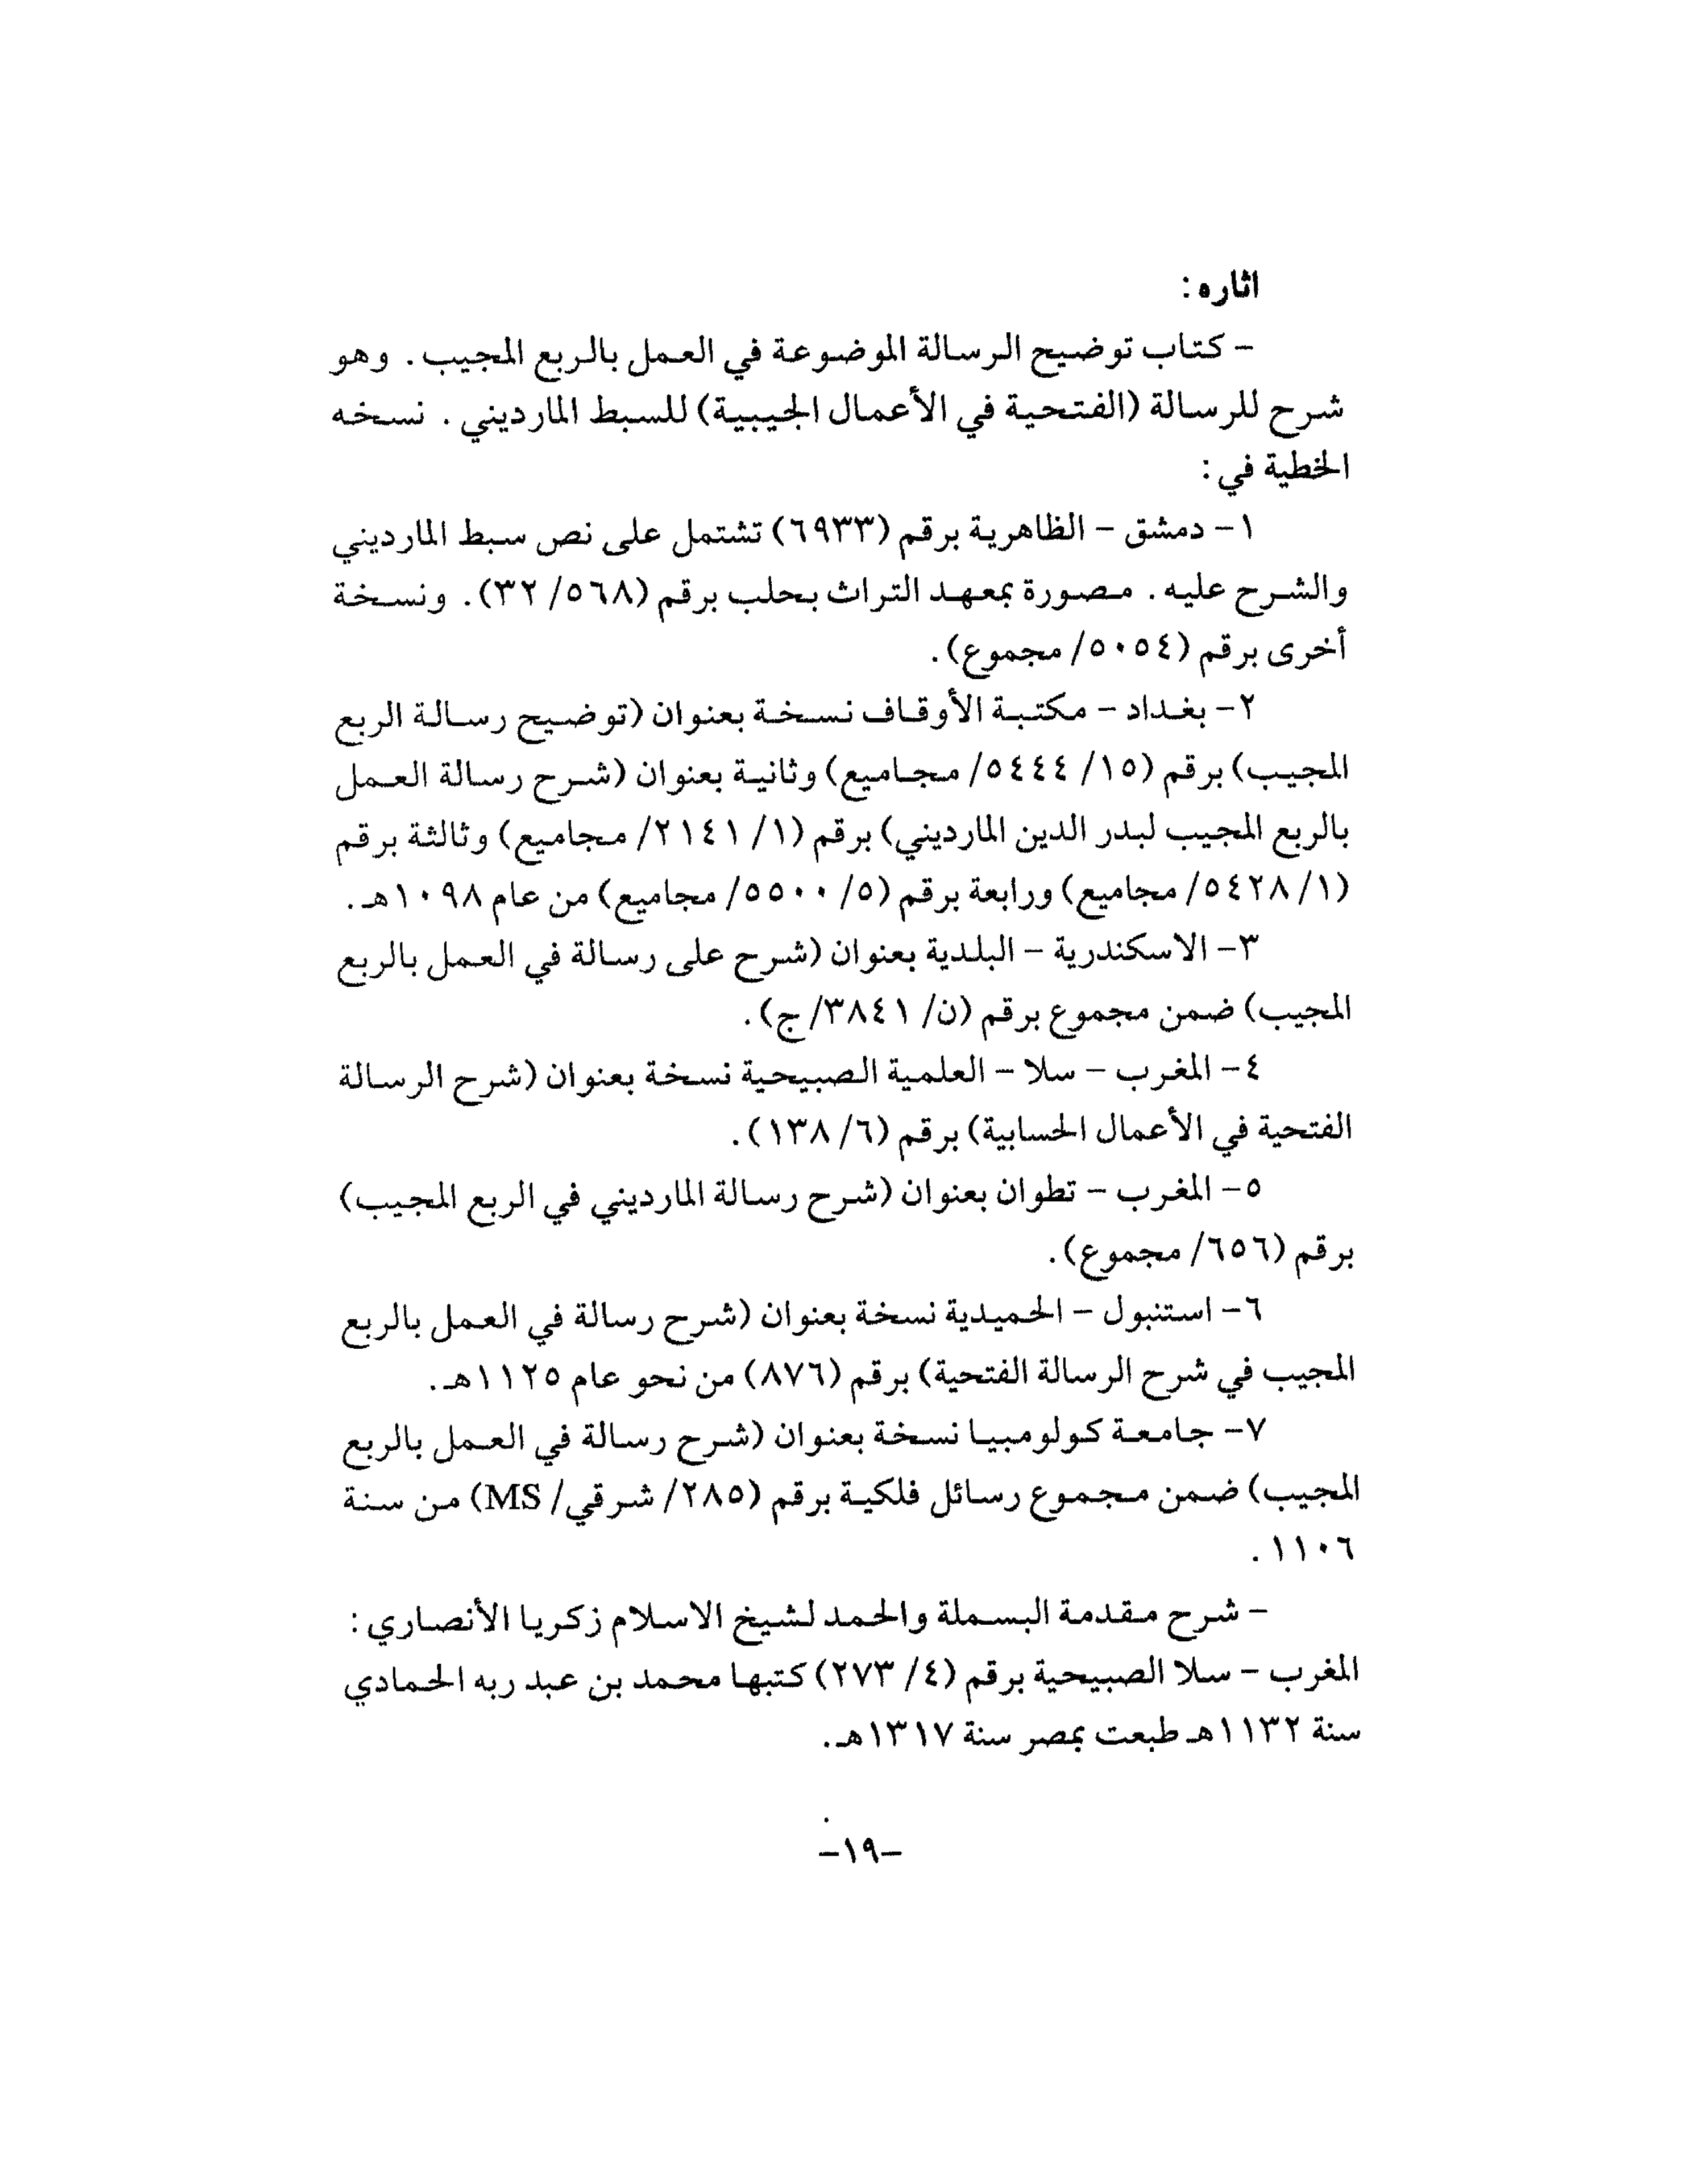 اثاره:
- كتاب توضيح الرسالة الموضوعة في العمل بالربع المجيب. وهو
شرح للرسالة (الفتحية في الأعمال الجيبية) للسبط المارديني. نسخه
الخطية في:
١- دمشق - الظاهرية برقم (٦٩٣٣) تشتمل على نص سبط المارديني
والشرح عليه. مصورة بمعهد التراث بحلب برقم (٥٦٨/ ٣٢). ونسخة
أخرى برقم (٥٠٥٤/ مجموع).
٢- بغداد - مكتبة الأوقاف نسخة بعنوان (توضيح رسالة الربع
المجيب) برقم (١٥/ ٥٤٤٤/ مجاميع) وثانية بعنوان (شرح رسالة العمل
بالربع المجيب لبدر الدين المارديني) برقم (١/ ٢١٤١/ مجاميع) وثالثة برقم
(١/ ٥٤٢٨/ مجاميع) ورابعة برقم (٥/ ٥٥٠٠/ مجاميع) من عام ١٠٩٨هـ.
٣- الاسكندرية - البلدية بعنوان (شرح على رسالة في العمل بالربع
المجيب) ضمن مجموع برقم (ن/ ٣٨٤١/ ج).
٤- المغرب - سلا - العلمية الصبيحية نسخة بعنوان (شرح الرسالة
الفتحية في الأعمال الحسابية) برقم (٦/ ١٣٨).
٥- المغرب - تطوان بعنوان (شرح رسالة المارديني في الربع المجيب)
برقم (٦٥٦/ مجموع).
٦- استنبول - الحميدية نسخة بعنوان (شرح رسالة في العمل بالربع
المجيب في شرح الرسالة الفتحية) برقم (٨٧٦) من نحو عام ١١٢٥هـ.
٧- جامعة كولومبيا نسخة بعنوان (شرح رسالة في العمل بالربع
المجيب) ضمن مجموع رسائل فلكية برقم (٢٨٥/ شرقي/ MS) من سنة
١١٠٦.
- شرح مقدمة البسملة والحمد لشيخ الاسلام زكريا الأنصاري:
المغرب - سلا الصبيحية برقم (٤/ ٢٧٣) كتبها محمد بن عبد ربه الحمادي
سنة ١١٣٢هـ طبعت بمصر سنة ١٣١٧هـ.
-١٩-